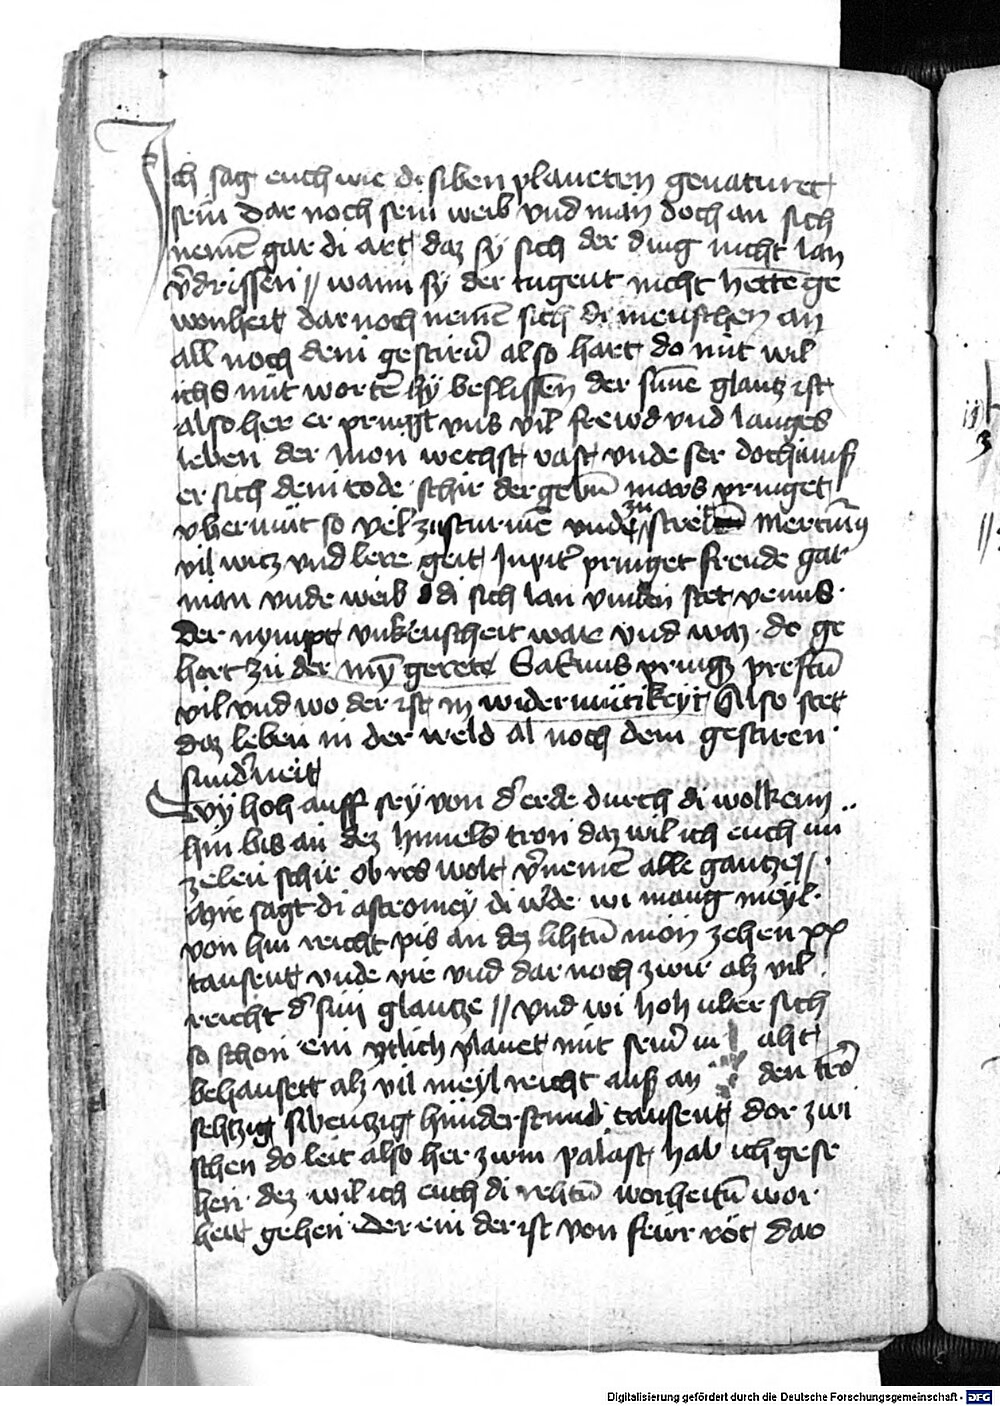 Ich sag euch wie di siben planeten genaturet
sein dar noch sein weib vnd man doch an sich
nemen gar di art daz sy sich der ding nicht lan
v̄drissen // wann sy der tugent nicht hette ge
wonheit dar noch nemen sich di menschen an
all noch dem gestirn̄ also hart do mit wil
ichs mit worten̄ hy beslissen der sunne glantz ist
also her er pringt vns vil frewd vnd langes
leben der mon wechst vast vnde ser doch muß
er sich dem tode schir der geben̄ mars pringet
vbermüt so vil zu sturmē vnde zu streiten Mercurius
vil witz vnd lere geit Jupit̄ pringet freude gar
man vnde weib di sich lan vinden stet venus
der nympt vnkeuscheit ware vnd waz do ge
hort zu der myn̄ gerete Saturnus pringz prestn̄
vil vnd wo der ist in widermütikeyt Also stet
daz leben in der weld al noch dem gestiren
sunder neit
Wy hoh auff sey von d̄ erde durch di wolkenn
hin bis an dez himels tron daz wil ich euch nu
zelen schir ob ires wolt v̄nemen̄ alle gantze //
Mir sagt di astromey di w̄de wi mang meyl
von hin reicht pis an dez lihtn̄ mon zehen xx
tausent vnde vie vnd dar noch zwir alz vil
reicht d̄ sun glantze // vnd wi hoh uber sich
so schon ein ytlich planet mit sein̄ in aht
behausett alz vil meyl reicht auß an den tro
sehtzig sibentzig hundertstund tausent dor zwi
schen do leit also her zwm palast hab ich gese
hen dez wil ich euch di rehtn̄ worheitn̄ wor
heit gehen Der ein der ist von feür röt dar
Digitalisierung gefördert durch die Deutsche Forschungsgemeinschaft - DFG